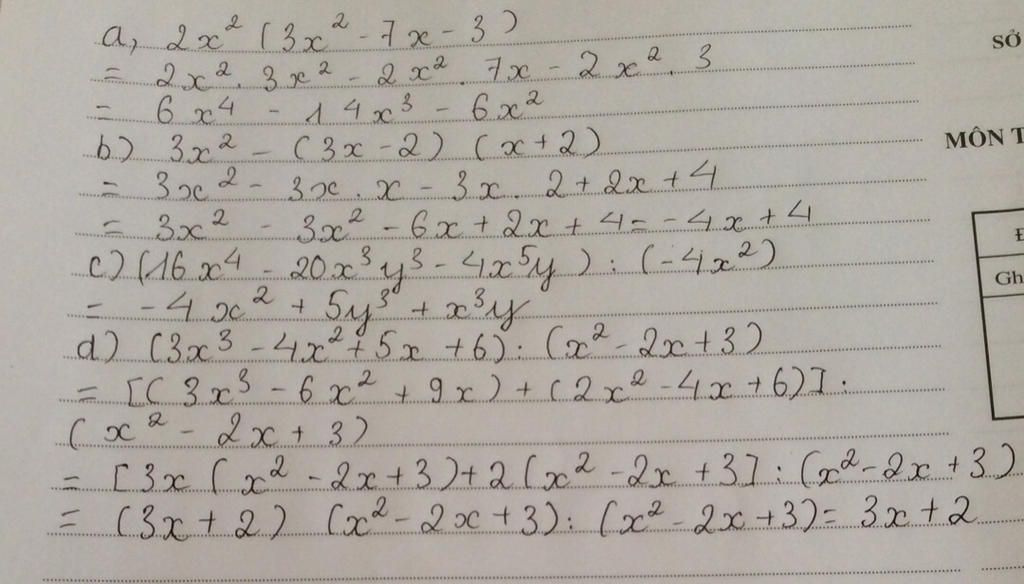 a, 2x² (3x² - 7x - 3)
= 2x² . 3x² - 2x² . 7x - 2x² . 3
= 6x⁴ - 14x³ - 6x²
b) 3x² - (3x - 2) (x + 2)
= 3x² - 3x . x - 3x . 2 + 2x + 4
= 3x² - 3x² - 6x + 2x + 4 = -4x + 4
c) (16x⁴ - 20x³y³ - 4x⁵y) : (-4x²)
= -4x² + 5y³ + x³y
d) (3x³ - 4x² + 5x + 6) : (x² - 2x + 3)
= [(3x³ - 6x² + 9x) + (2x² - 4x + 6)] :
(x² - 2x + 3)
= [3x (x² - 2x + 3) + 2(x² - 2x + 3] : (x² - 2x + 3)
= (3x + 2) (x² - 2x + 3) : (x² - 2x + 3) = 3x + 2
SỞ
MÔN T
Đ
Gh